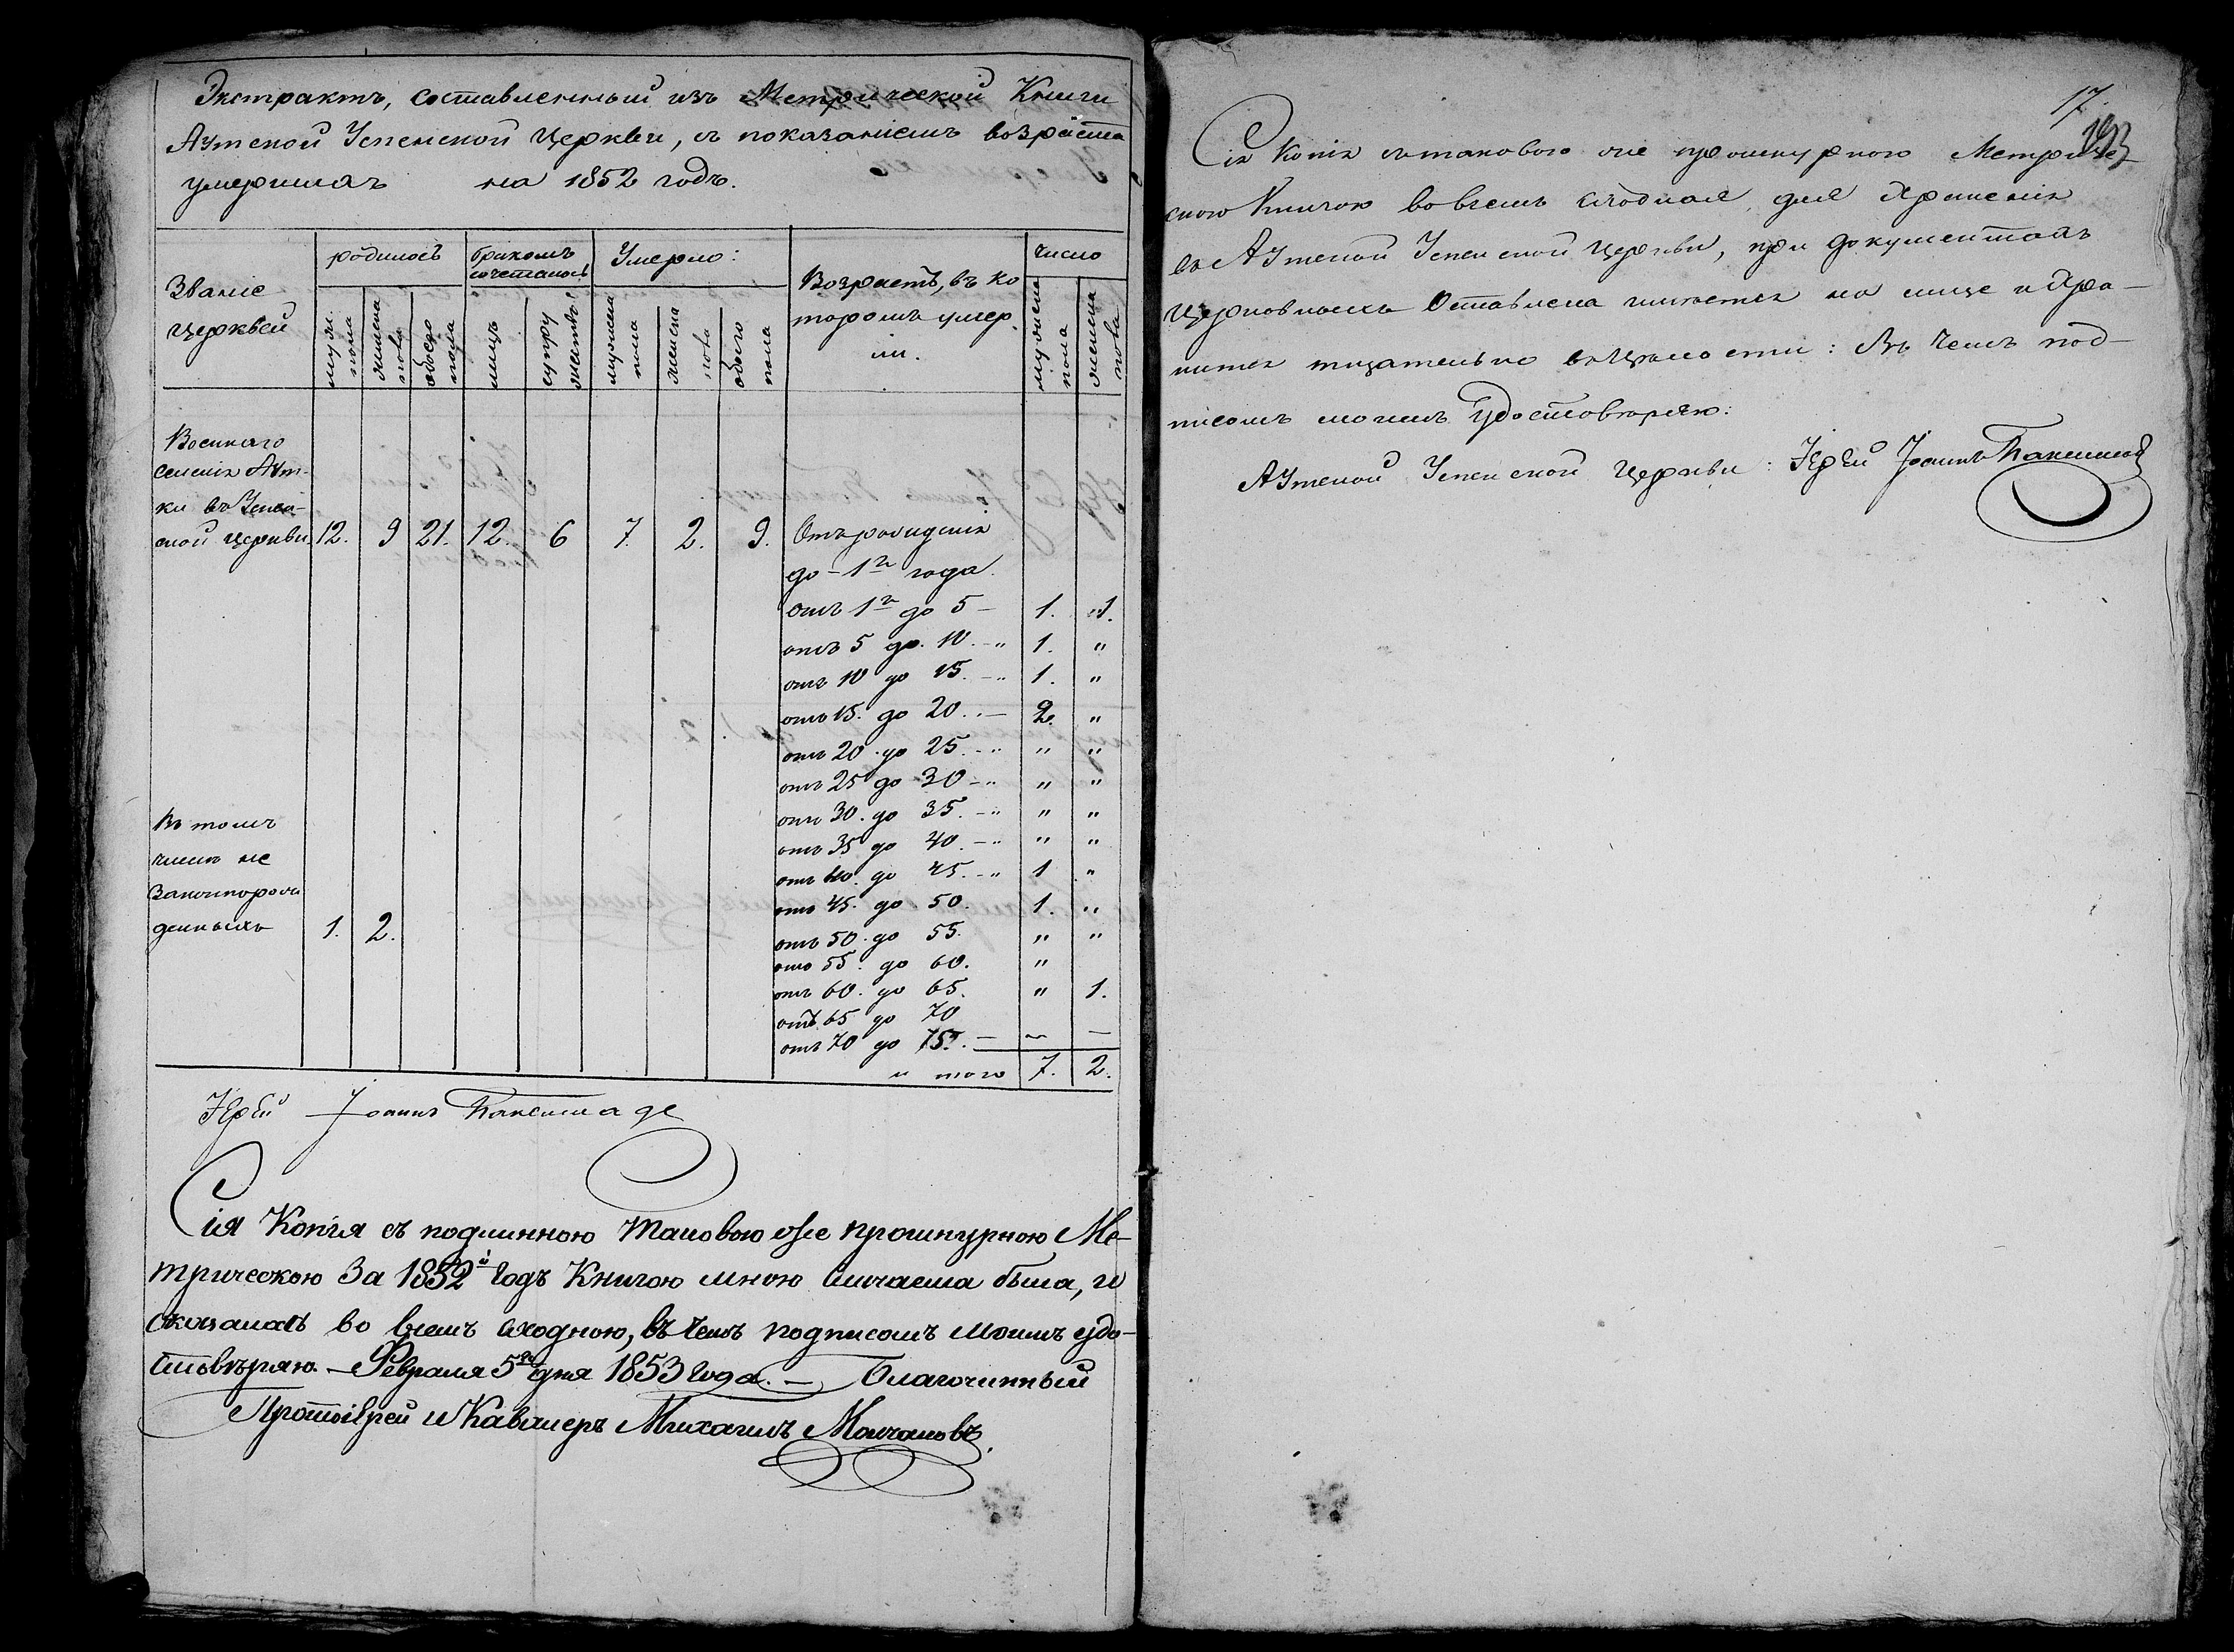 Экстрактъ, составленный изъ Метрической Книги
Аутской Успенской Церкви, съ показаніемъ возраста
умершихъ на 1852 годъ.
Званіе
Церквей
родилось
бракомъ
сочеталось
Умерло:
Возрастъ, въ ко
торомъ умер
ли.
число
мужс.
пола
женска
пола
обоего
пола
лицъ
супру
жествъ
мужеска
пола
женска
пола
обоего
пола
мужеска
пола
женска
пола
Военнаго
селенія Аут-
ки въ Успен-
ской Церкви. 12. 9 21. 12. 6 7. 2. 9. Отъ рожденія
до 1го года.
отъ 1го до 5 — 1. 1.
отъ 5 до. 10. — „ 1. „
отъ 10 до 15. — „ 1. „
отъ 15. до 20. „ — 2. „
отъ 20. до 25. — „ „ „
отъ 25 до 30 — „ „ „
отъ 30. до 35. — „ „ „
отъ 35 до 40. — „ „ „
отъ 40. до 45. — „ 1 „
отъ 45. до 50. 1. „
отъ 50. до 55. „ „
отъ 55. до 60. „
отъ 60. до 65. „ 1.
отъ 65 до 70
отъ 70 до 75. — — —
и того 7. 2.
Въ томъ
числѣ не
законнорож
денныхъ 1. 2.
Іерей Іоаннъ
Сія Копія съ подлинною таковою же прошнурною Ме-
трическою за 1852й годъ Книгою мною сличаема была, и
оказалась во всемъ сходною, въ чемъ подписомъ моимъ удо-
стовѣряю. — Февраля 5го дня 1853 года. — Благочинный
Протоіерей и Кавалеръ Михаилъ
17.
Сія Копія съ таковою же прошнурною Метриче-
скою Книгою во всемъ сходная, для храненія
въ Аутской Успенской Церкви, при документахъ
Церковныхъ Оставлена имѣется на лице и Хра-
нится тщательно въ Цѣлости: Въ Чемъ под-
писомъ моимъ Удостовѣряю:
Аутской Успенской Церкви: Іерей Іоаннъ